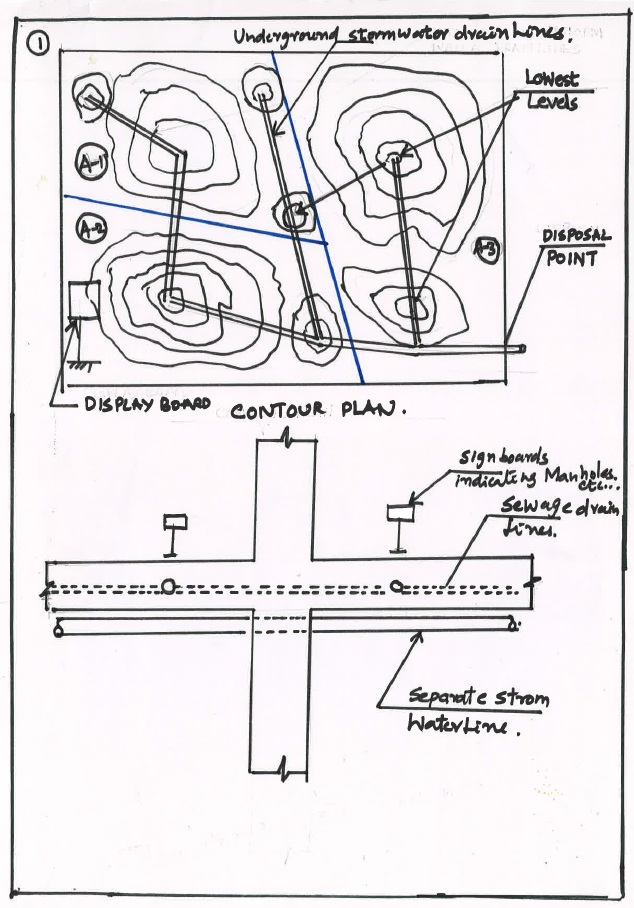 1
Underground stormwater drain Lines.
Lowest
Levels
A-1
A-2
A-3
DISPOSAL
POINT
DISPLAY BOARD
CONTOUR PLAN.
Signboards
indicating Manholes.
etc...
Sewage drain
Lines.
Separate Strom
Water Line.